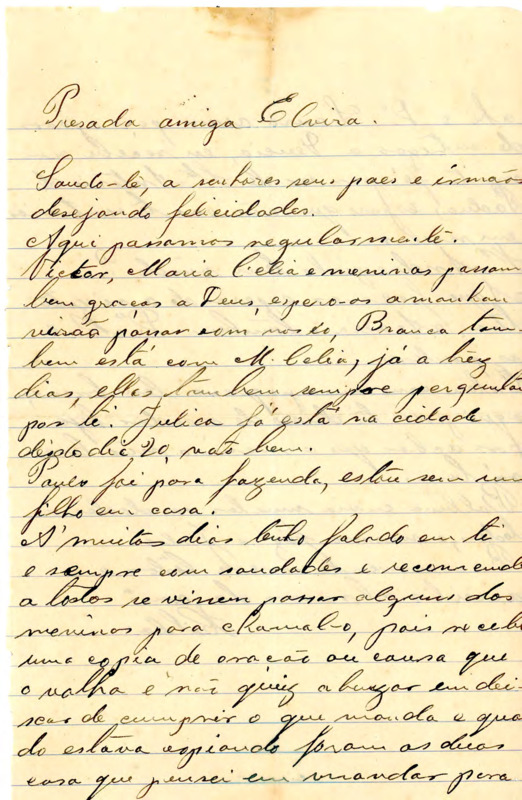 Presada amiga Elvira.
Saudo-te, a senhores seus paes e irmãos
desejando felicidades.
Aqui passamos regularmente.
Victor, Maria Celia e meninas passam
bem graças a Deus, espero-os amanhan
virão passar com nosco, Branca tam-
bem está com M. Celia, já a trez
dias, elles tambem sempre perguntão
por ti. Julica já está na cidade
dizdo dia 20 vato bem.
Paulo foi para fazenda, estou sem um
filho em casa.
A muitos dias tenho falado em ti
e sempre com saudades e recomende
a todos se vissem passar alguns dos
meninos para Ramalho, pois recebi
uma copia de oração ou cousa que
o valha e não quiz abuzar em dei-
scar de cumprir o que manda e qua
do estava copiando foram as duas
cosa que pensei em mandar para